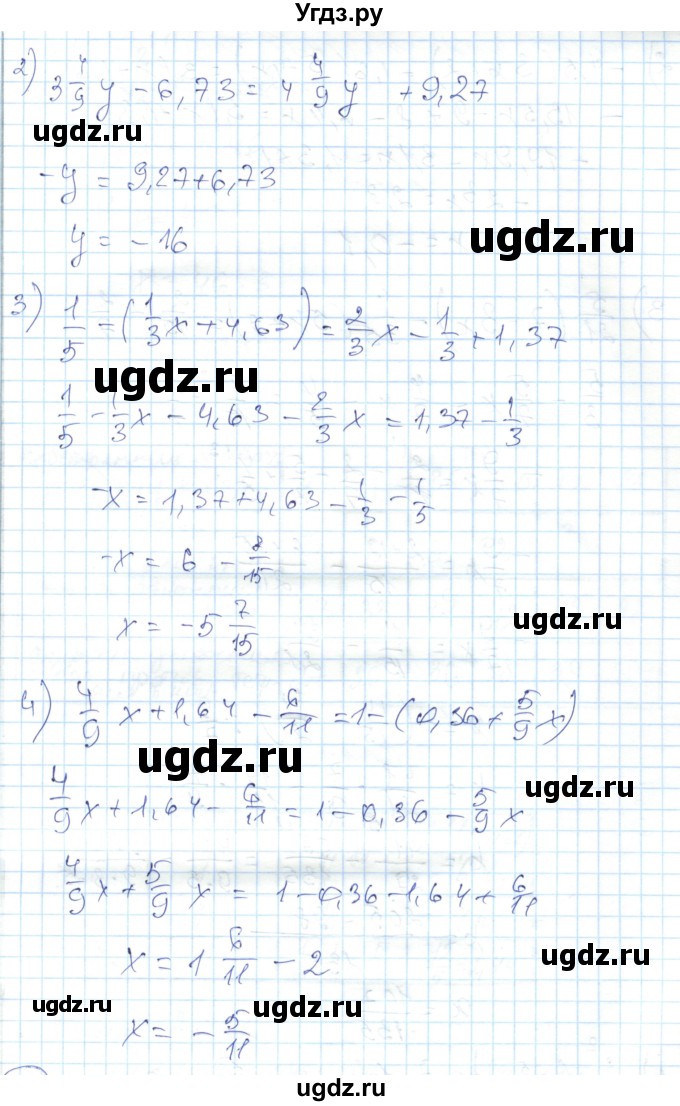 Угдз.ру
2) 3 4/9 y − 6,73 = 4 4/9 y + 9,27
ugdz.ru
−y = 9,27+6,73
y = −16
ugdz.ru
3) 1/5 = (1/3 x + 4,63) = 2/3 x − 1/3 + 1,37
ugdz.ru
1/5 − 1/3 x − 4,63 − 2/3 x = 1,37 − 1/3
−x = 1,37+4,63 − 1/3 − 1/5
−x = 6 − 8/15
ugdz.ru
x = −5 7/15
4) 4/9 x + 1,64 − 6/11 = 1 − (0,36 + 5/9 x)
ugdz.ru
ugdz.ru
4/9 x + 1,64 − 6/11 = 1 − 0,36 − 5/9 x
4/9 x + 5/9 x = 1 − 0,36 − 1,64 + 6/11
x = 1 6/11 − 2
ugdz.ru
ugdz.ru
ugdz.ru
x = − 5/11
ugdz.ru